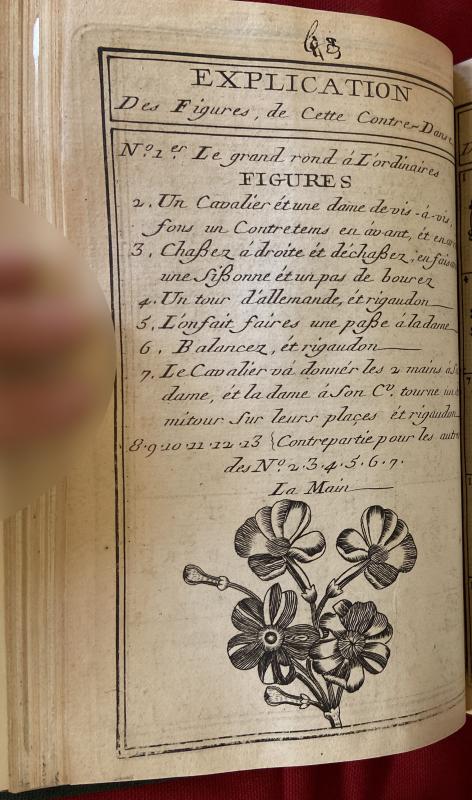 63
EXPLICATION
Des Figures, de Cette Contre-Danse
N.º 1.er Le grand rond á L'ordinaires
FIGURES
2. Un Cavalier ét une dame de vis-à-vis,
font un Contretems en ávant, ét en
3. Chaßez á droite ét déchaßez, en
une Sißonne ét un pas de bourez
4. Un tour d'allemande, ét rigaudon
5. L'on fait faires une paße á la dame
6. Balancez, ét rigaudon
7. Le Cavalier vá donnér les 2 mains á
dame, ét la dame á Son C.v. tourne
mitour Sur leurs plaçes ét rigaudon
8.9.10.11.12.13 { Contrepartie pour les
des N.º 2.3.4.5.6.7.
La Main